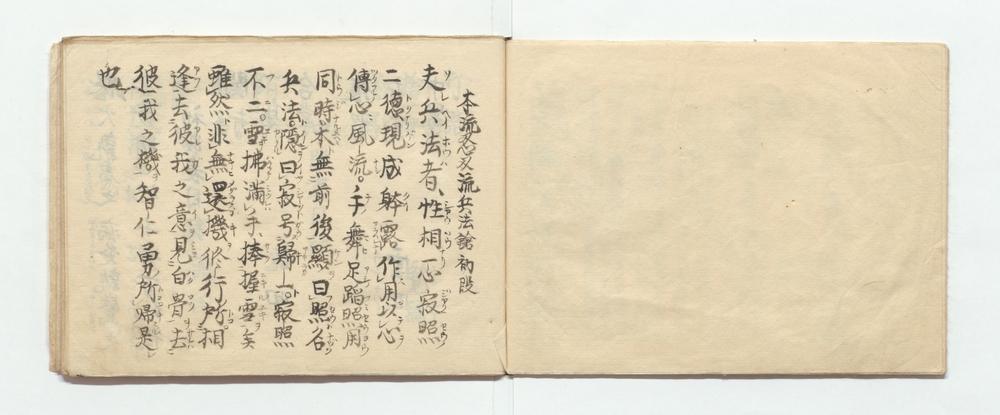 本流忍及流兵法鎗初段
夫兵法者、性相一心寂照
二徳現成躰露作用以心
傳心風流。手舞足蹈照用
同時本無前後顯曰照名
兵法。隱曰寂号歸一。寂照
不二。雪拂滿手、捧握雪矣
雖然非無還機修行所相
逢去彼我之意見白骨去
彼我之機智仁勇所帰是
也